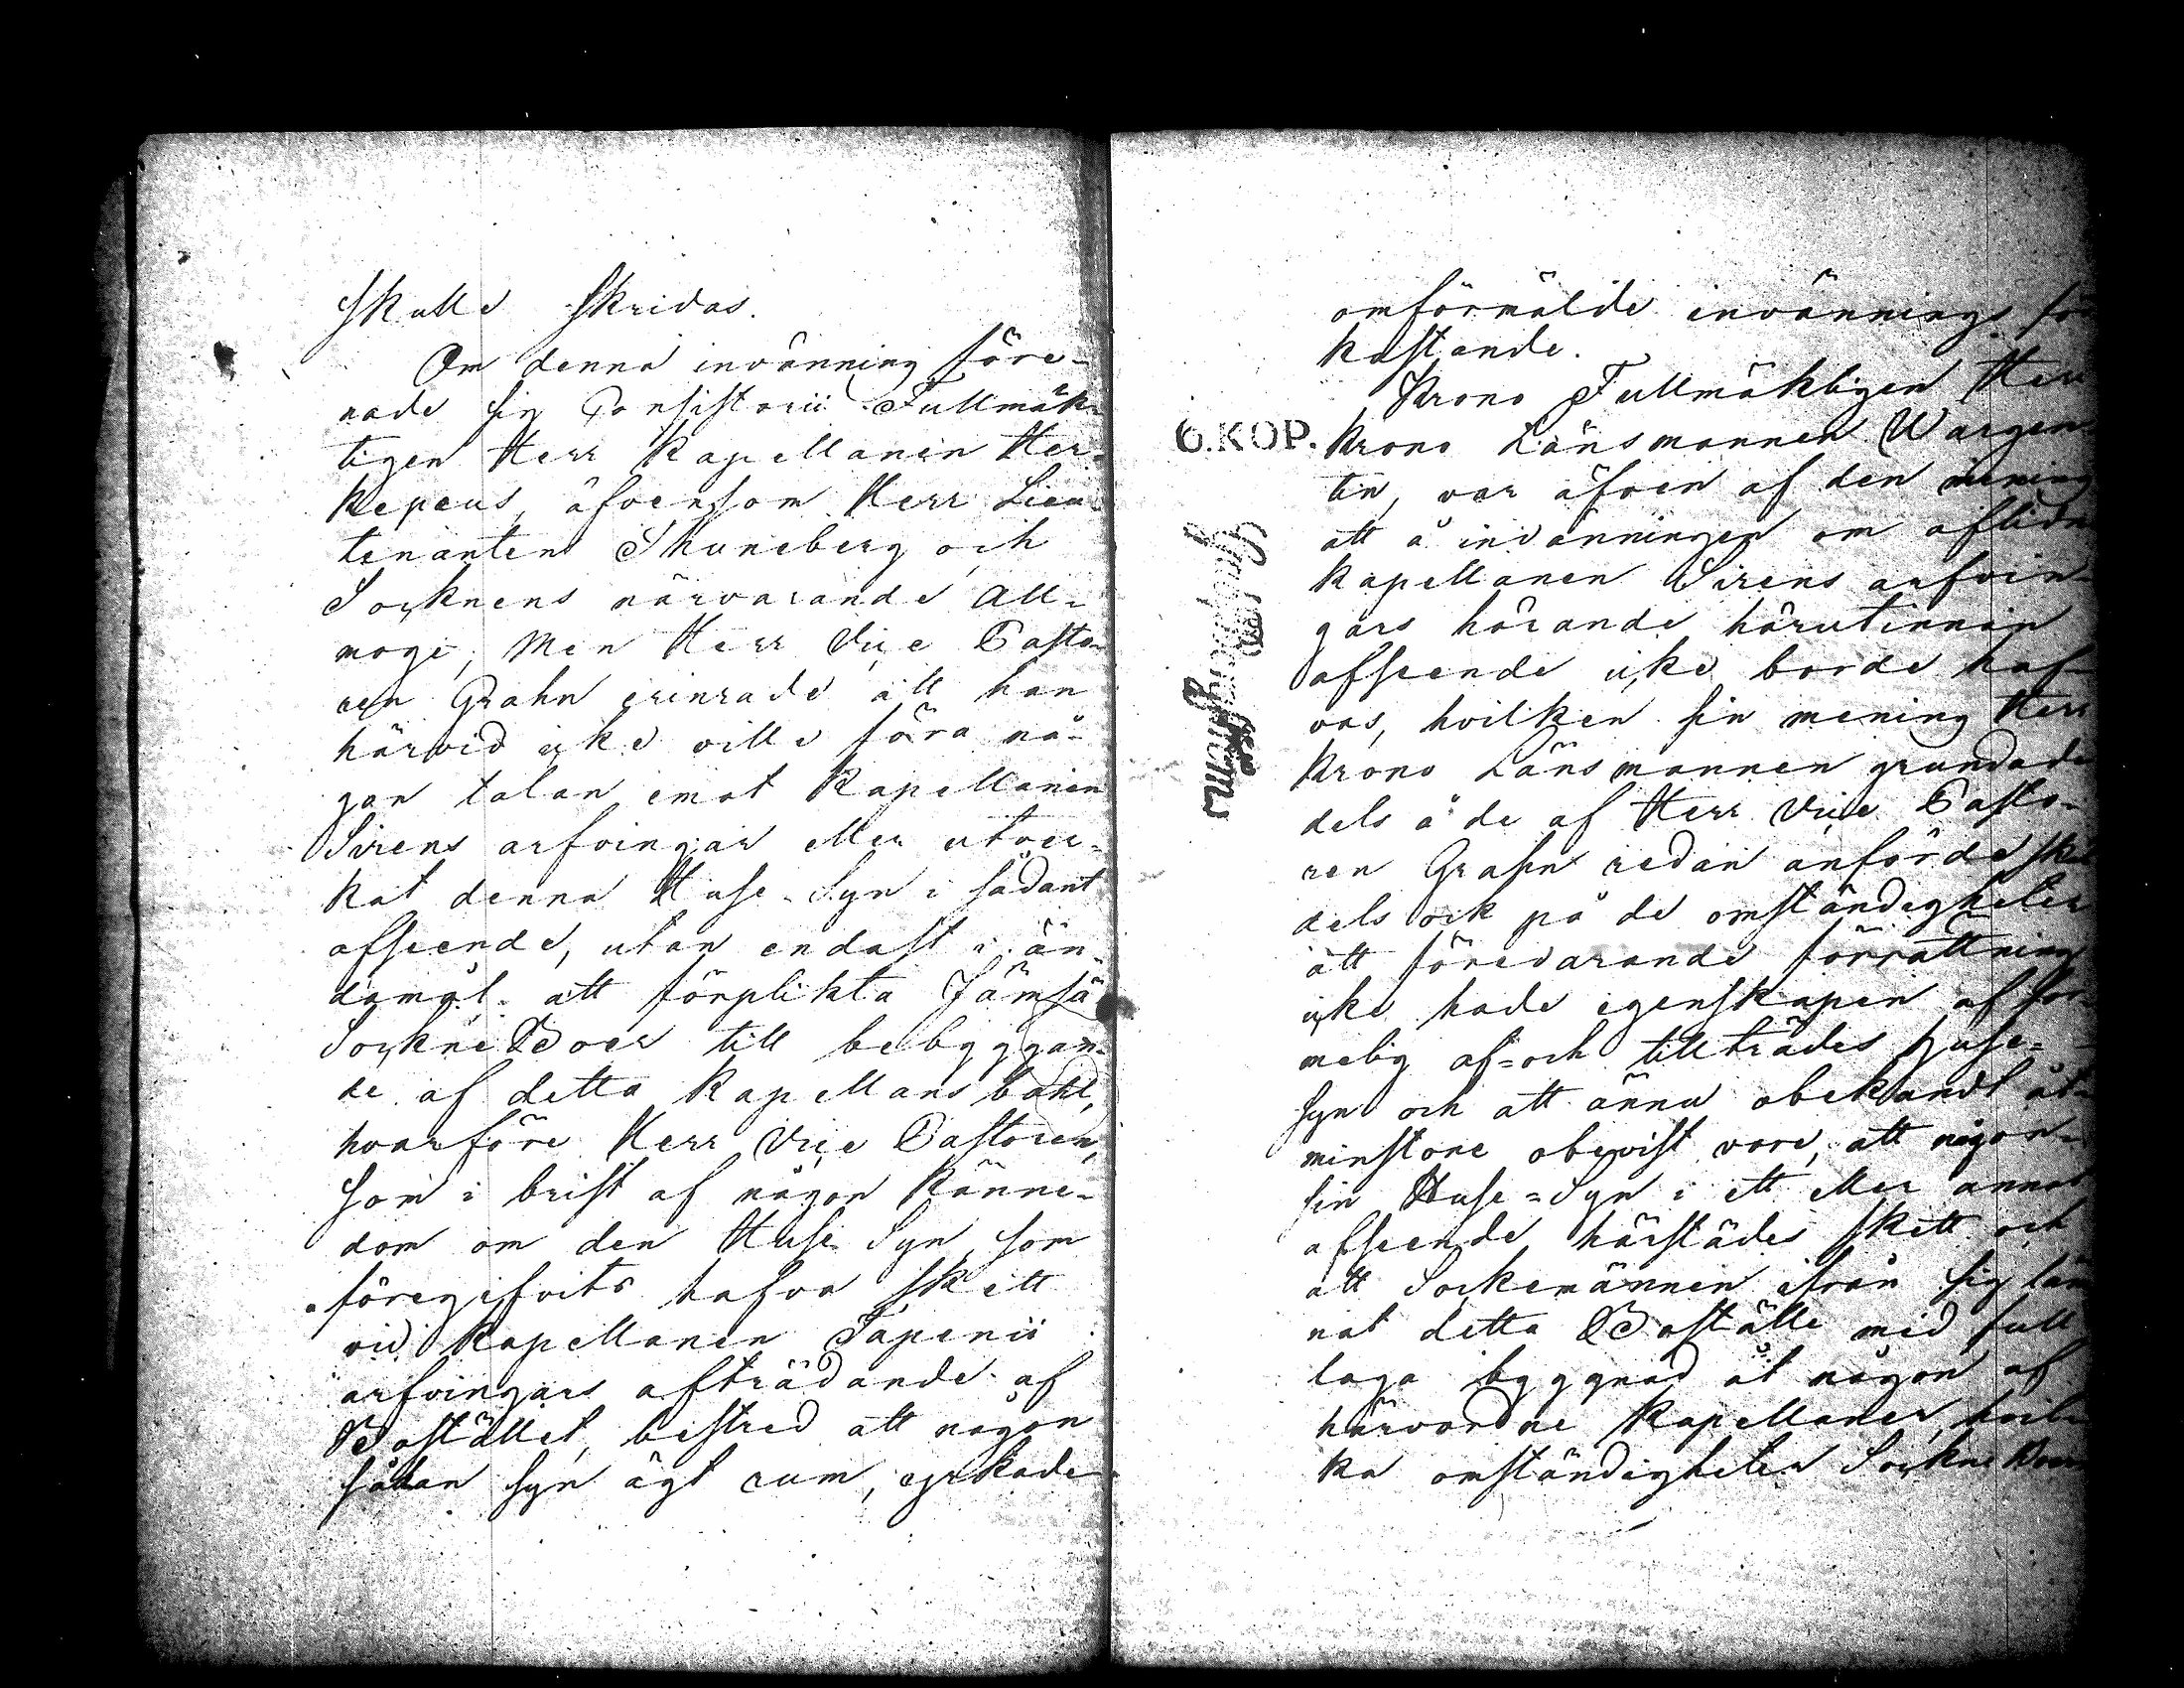 skulle skridas.
Om denna invänning före-
nade sig Consistorii Fullmäk-
tigen Herr Kapellanen Her-
kepeus, äfvensom Herr Lieu-
tenanten Thuneberg och
Socknens närvarande All-
moge; Men Herr Vice Pasto-
ren Grahn erinrade att han
härvid icke ville föra nå-
gon talan emot Kapellanen
Sirens arfvingar eller utver-
kat denna Huse-Syn i sådant
afseende, utan endast i än-
damål att förplikta Jämsä
SockneBoer till bebyggan-
de af detta Kapellans bohl,
hvarföre Herr Vice Pastoren,
som i brist af någon känne-
dom om den Huse Syn som
föregifvits hafva skett
vid Kapellanen Tapenii
arfvingars afträdande af
Bostället, bestred att någon
sådan syn ägt rum, yrkade
omförmälde invännings för-
kastande.
Krono Fullmäktigen Herr
6.KOP. Krono Länsmannen Wargen-
tin, var äfven af den mening
att å invänningen om aflidne
Kapellanen Sirens arfvin-
gars hörande härutinnan
afseende icke borde haf-
vas, hvilken sin mening Herr
Krono Länsmannen grundade
dels å de af Herr Vice Pasto-
ren Grahn redan anförde skäl
dels ock på de omständigheter
att förevarande förrättning
icke hade egenskapen af for-
melig af- och tillträdes huse-
syn och att ännu obekandt åt-
minstone obevist vore, att någon-
sin Huse-Syn i ett eller annat
afseende härstädes skett och
att Sockenämnen ifrån sig läm
nat detta Boställe med full
laga byggnad åt någon af
härvordne Kapellaner, hvil-
ka omständigheter Sockne Boer